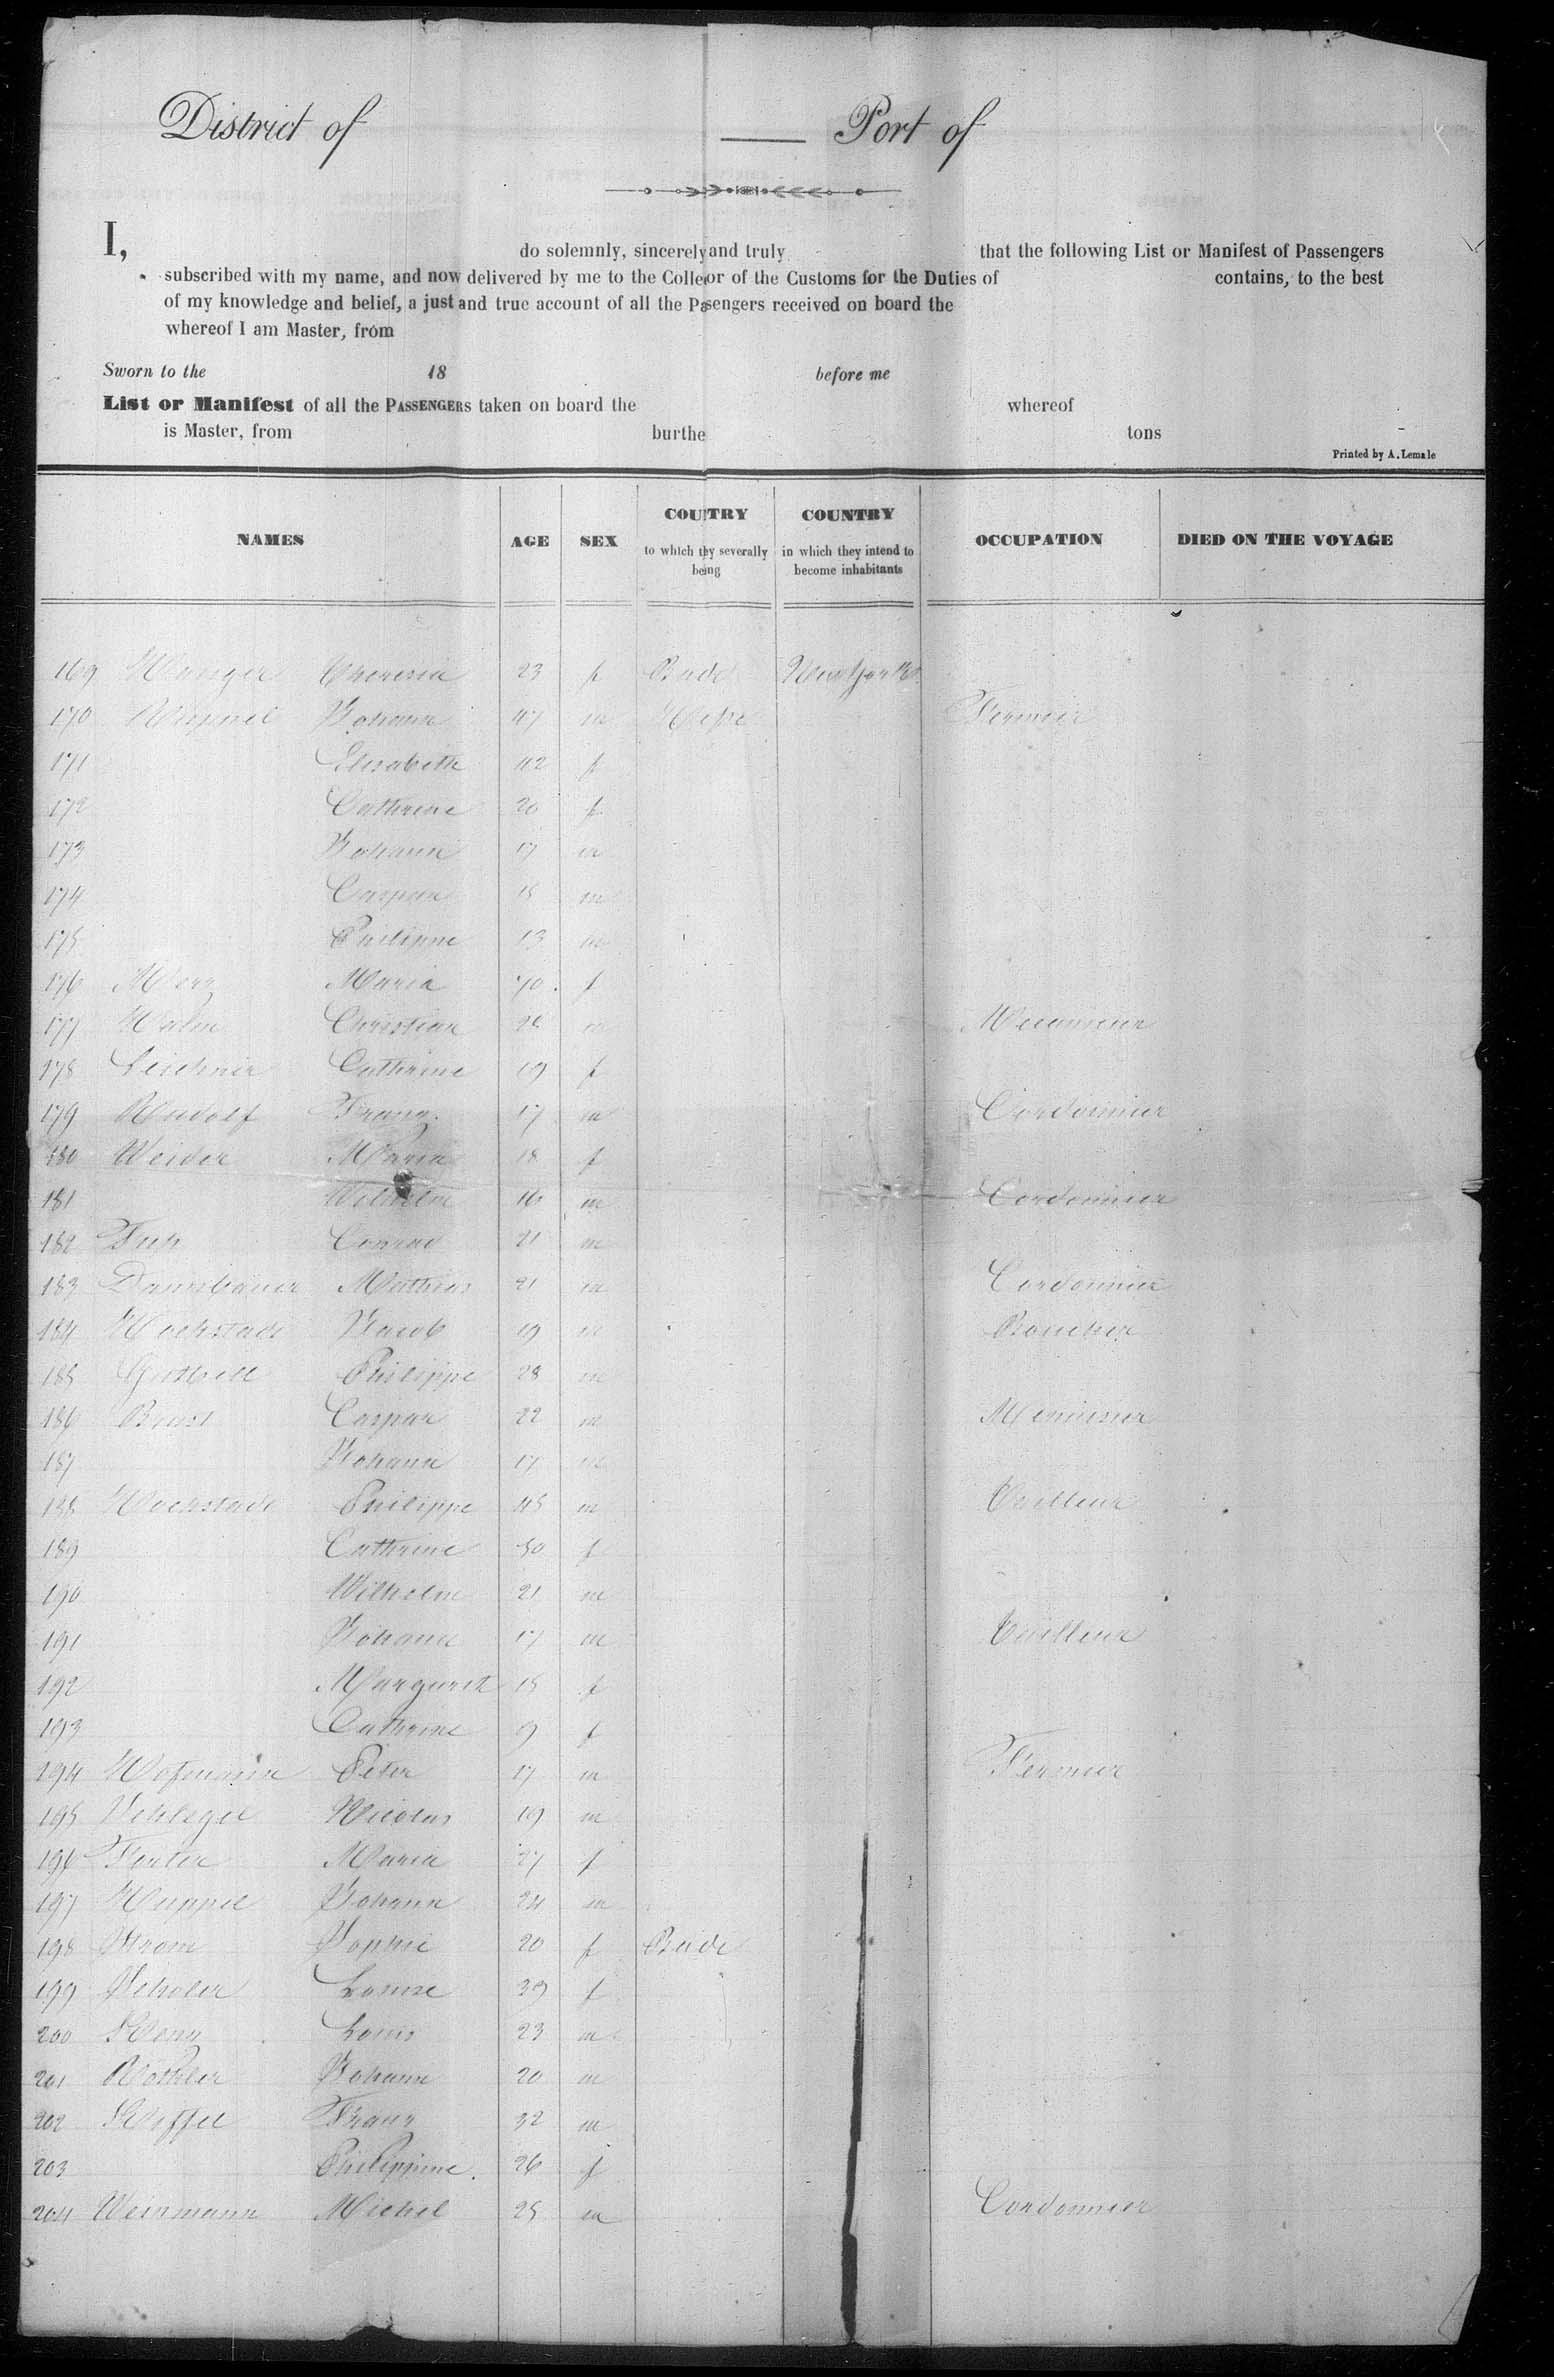 District of — Port of
I, do solemnly, sincerely and truly that the following List or Manifest of Passengers
subscribed with my name, and now delivered by me to the Colleor of the Customs for the Duties of contains, to the best
of my knowledge and belief, a just and true account of all the Pasengers received on board the
whereof I am Master, from
Sworn to the 18 before me
List or Manifest of all the PASSENGERS taken on board the whereof
is Master, from burthe tons
Printed by A. Lemale
NAMES AGE SEX COUTRY to which thy severally being COUNTRY in which they intend to become inhabitants OCCUPATION DIED ON THE VOYAGE
169 Theresia 23 f Bade New York
170 Johann 47 m Fermier
171 Elisabeth 42 f
172 Cathrine 20 f
173 Johann 17 m
174 Caspar 15 m
175 Philippe 13 m
176 Merz Maria 70 f
177 Christian m
178 Leichner Cathrine 19 f
179 Rudolf Franz 17 m Cordonnier
180 Weider Maria 18 f
181 Wilhelm 16 m Cordonnier
182 Conrad 21 m
183 Mathias 21 m Cordonnier
184 Hochstadt Jacob 19 m Boucher
185 Philippe 28 m
186 Brust Caspar 22 m Menuisier
187 Johann 17 m
188 Hochstadt Philippe 45 m Tailleur
189 Cathrine 50 f
190 Wilhelm 21 m
191 Johann 17 m Tailleur
192 Margareth 15 f
193 Cathrine 9 f
194 Hofmann Peter 17 m Fermier
195 Schlegel Nicolas 19 m
196 Maria 27 f
197 Huppel Johann 24 m
198 Strom Sophie 20 f Bade
199 Scholer Louise 29 f
200 Louis 23 m
201 Johann 20 m
202 Franz 32 m
203 Philippine 26 f
204 Weinmann Michel 25 m Cordonnier